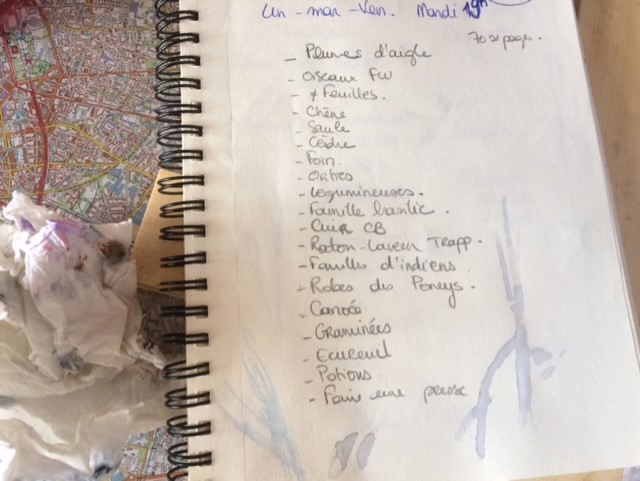 Lun - mar - Ven. Mardi 19h
70 pages.
- Plumes d'aigle
- Oiseaux FW
- Feuilles.
- Chêne
- Saule
- Cèdre
- Foin.
- Orties
- Légumineuses.
- Famille basilic.
- Cuir CB
- Raton-Laveur Trapp.
- Familles d'indiens
- Robes des Poneys.
- Canoës
- Graminées
- Ecureuil
- Potions
- Faire une presse